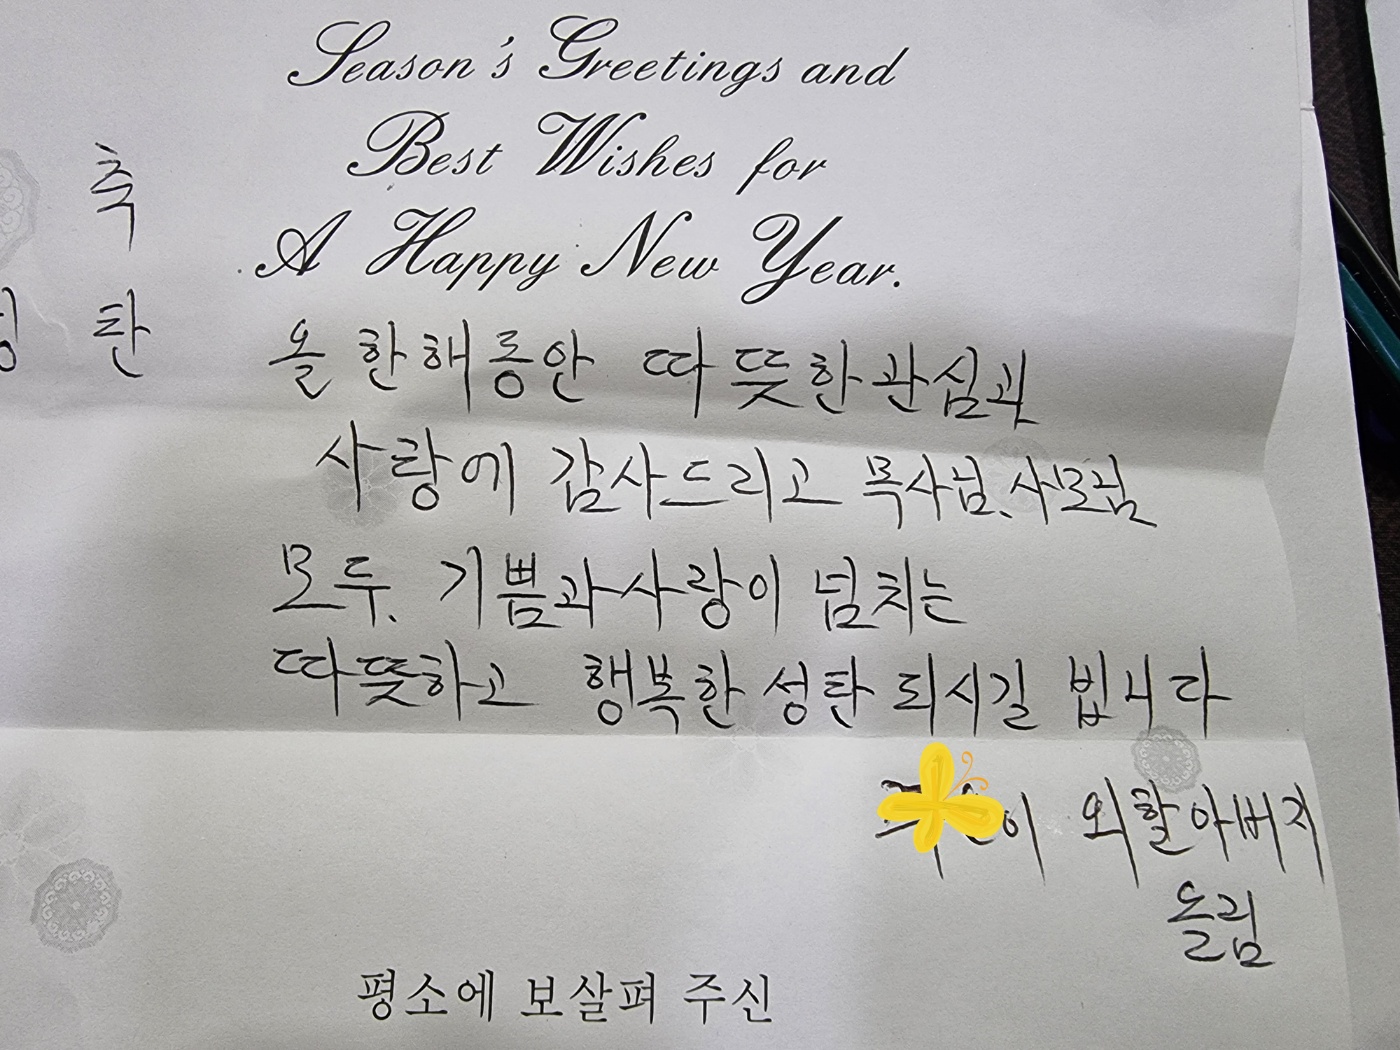 Season's Greetings and
Best Wishes for
A Happy New Year.
축
성 탄
올 한해동안 따뜻한 관심과
사랑에 감사드리고 목사님、사모님
모두. 기쁨과 사랑이 넘치는
따뜻하고 행복한 성탄 되시길 빕니다
이 외할아버지
올림
평소에 보살펴 주신